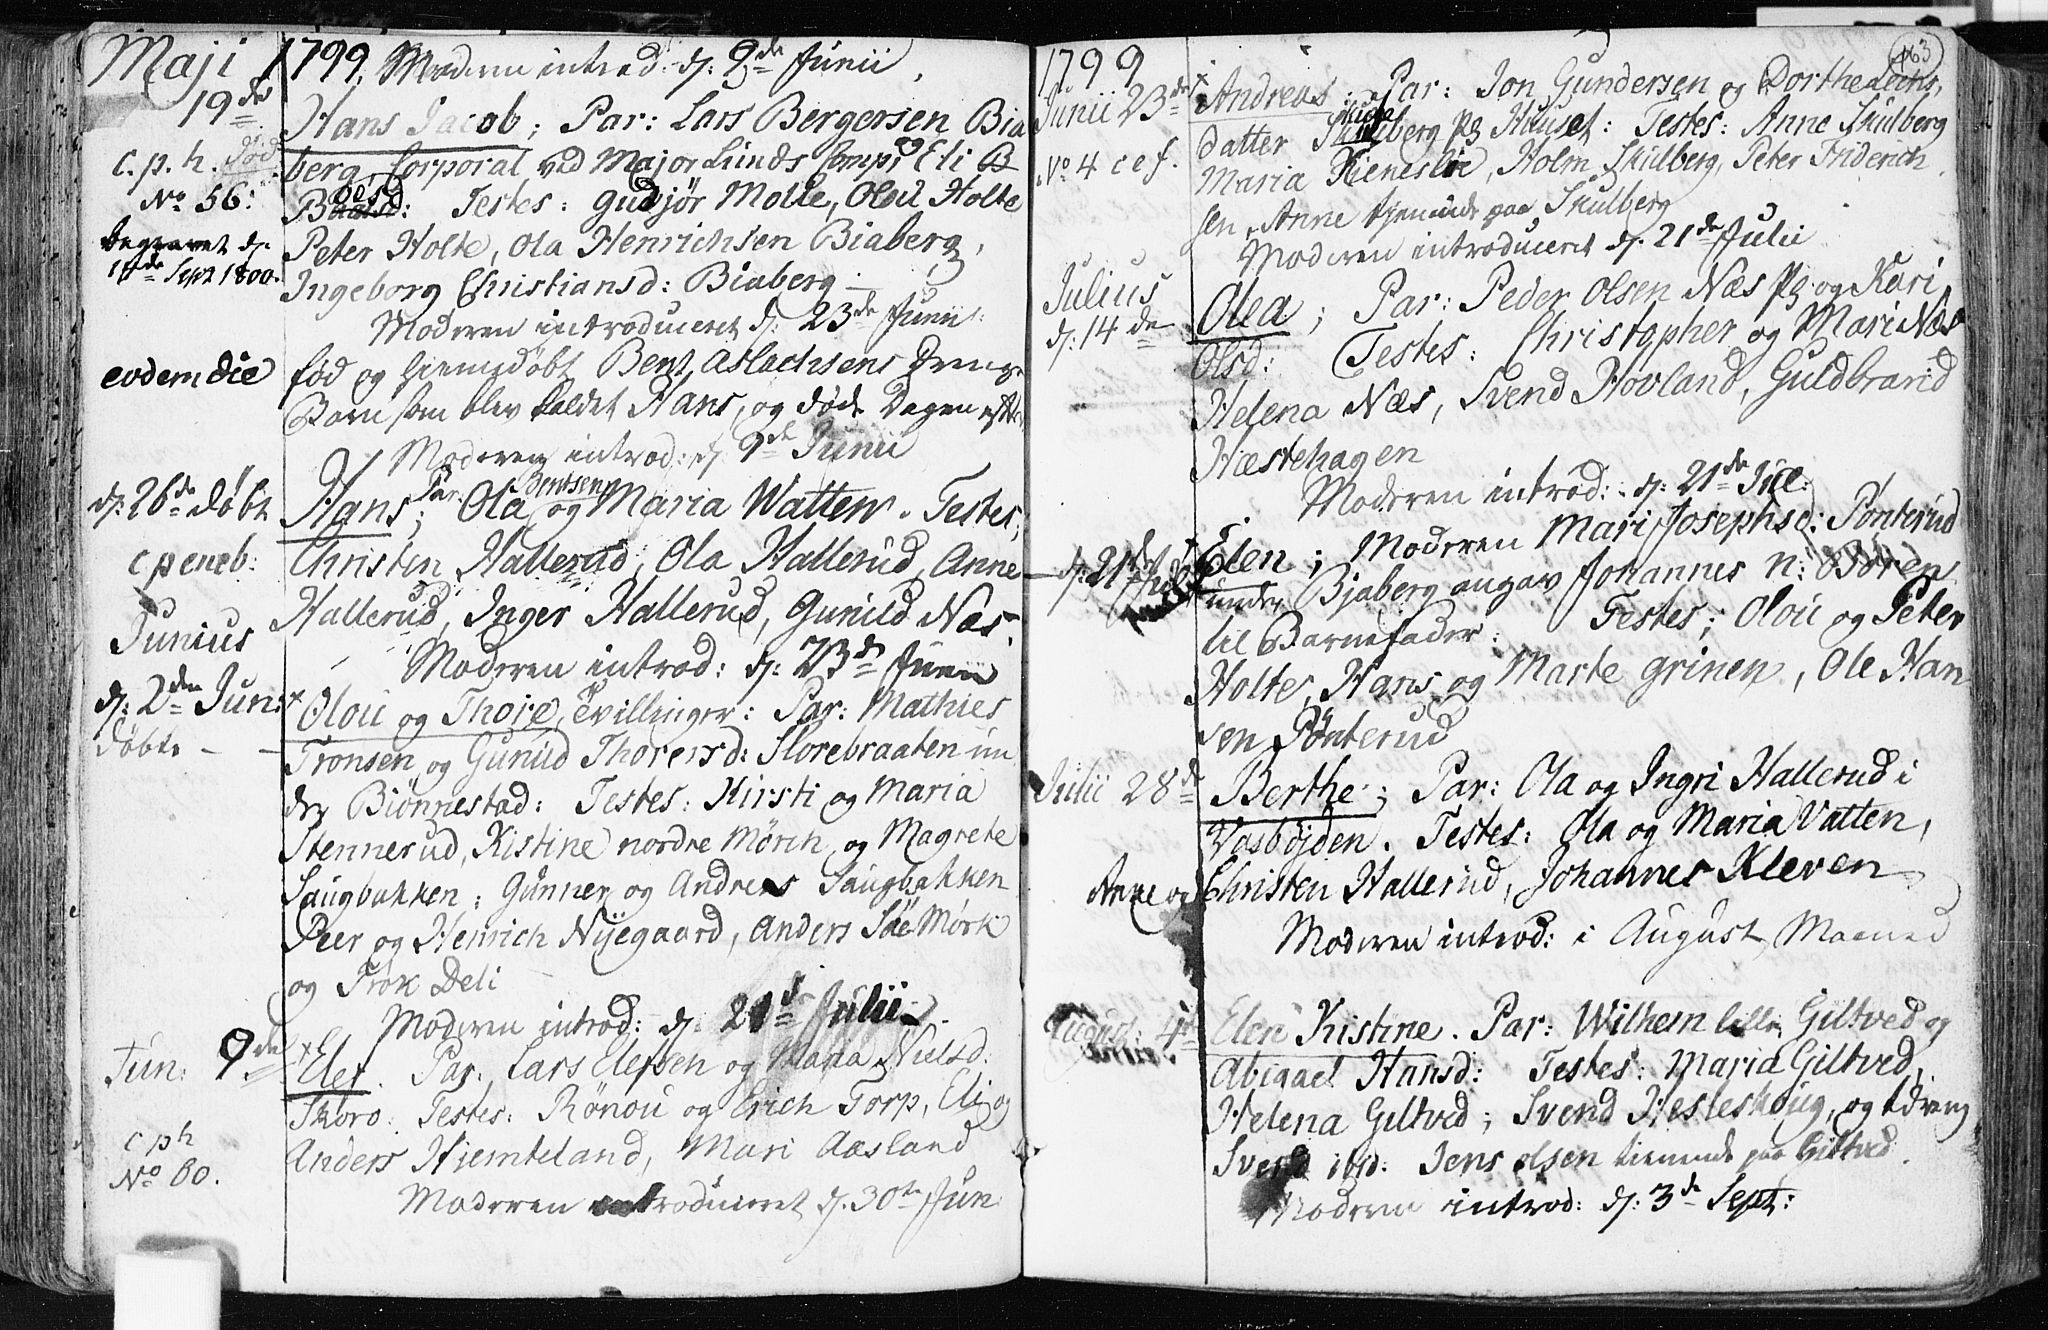 Maji 1799. Moderen introd: d: 9de Junii.
19de Hans Jacob; Par: Lars Bergersen Bia
c. p. h. berg, Corporal ved Major Lunds Comp: Eli B
No 56: Testes: Gudjør Molte, Oloü Holte
begravet d: Peter Holte, Ola Henrichsen Biaberg,
Sept 1800. Ingeborg Christiansd: Biaberg
Moderen introduceret d: 23de Junii:
eodem die fød og hiemedøbt Bent Aslachsens Drenge
Barn som blev kaldet Hans, og døde Dagen efter
Moderen introd: d: 9de Junii
d: 26de døbt Hans; Par: Ola og Maria Watten. Testes;
Christen Hallerud, Ola Hallerud, Anne
Hallerud, Inger Hallerud, Gunild Næs.
Junius
Moderen introd: d: 23de Junii
d: 2den Jun: Oloü og Thore, Tvillinger: Par: Mathies
døbte - - Tronsen og Gunild Thorersd: Storebraaten un
der Biønnestad: Testes: Kirsti og Maria
Stennerud, Kistine nordre Mörch, og Magrete
Saugbakken; Gunner og Andreas Saugbakken
Peer og Henrich Nyegaard, Anders Mørk
og Deli
Moderen introd: d: 21de Julii.
Jun: 9de Elef. Par: Lars Elefsen og Maria Nielsd:
Skoro: Testes: Rønou og Erich Torp, Eli og
c p h Anders Hiemteland, Mari Aasland
No 60.
Moderen introduceret d. 30te Jun:
163
1799
Junii 23de Andreas; Par: Jon Gundersen og Dorthe
datter Skulberg Pg Huuset: Testes: Anne Skulberg
No 4 c e f. Maria Holm Skulberg, Peter Friderich
sen, Anne tjenende paa Skulberg
Moderen introduceret d: 21de Julii
Julius
d: 14de Olea; Par: Peder Olsen Næs Pg og Kari
Olsd: Testes: Christopher og Mari Næs
Helena Næs, Svend Hovland, Guldbrand
Hæstehagen
Moderen introd: d: 21de Jul:
d: 21de Julii Elen; Moderen Mari Josephsd: Pønterud
under Bjaberg angav Johannes n: Børen
til Barnefader: Testes; Oloü og Peter
Holte, Hans og Marte Grinen, Ole Han
sen Pønterud
Julii 28de Berthe; Par: Ola og Ingri Hallerud i
Vasbøjden. Testes: Ola og Maria Vatten,
Anne og Christen Hallerud, Johannes Kleven
Moderen introd: i August Maaned
August: 4de Elen Kistine. Par: Wilhem lille Giltved og
Abigael Hansd: Testes: Maria Giltved,
Helena Giltved; Svend Hesteskoug, og
Svend ibid: Jens Olsen tienende paa Giltved.
Moderen introd: d: 3de Sept: